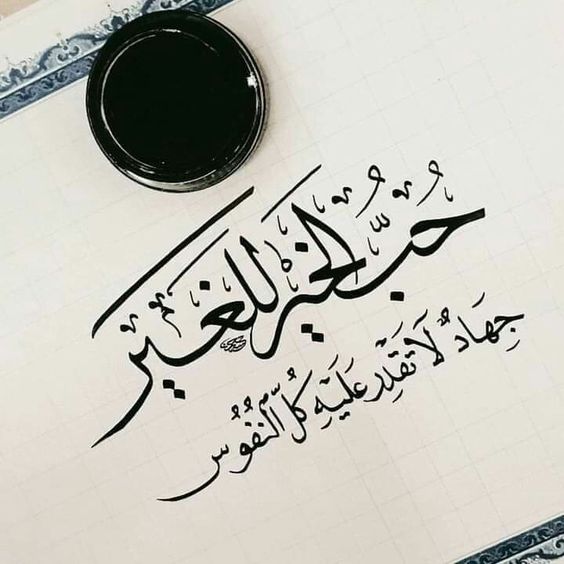 حُبُّ الخير للغير
جِهَادٌ لَا تَقْدِر عَلَيْهِ كُلُّ النُّفُوُس